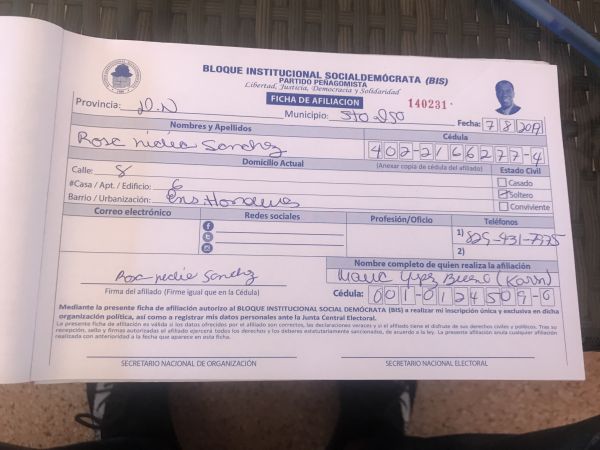 BLOQUE INSTITUCIONAL SOCIALDEMÓCRATA (BIS)
PARTIDO PEÑAGOMISTA
Libertad, Justicia, Democracia y Solidaridad
FICHA DE AFILIACION
140231
Provincia: D.N
Municipio: Sto Dgo
Fecha: 7 8 2019
Nombres y Apellidos
Cédula
Rosa nidia Sanchez
402-2166277-4
Domicilio Actual
(Anexar copia de cédula del afiliado)
Estado Civil
Calle: 8
Casado
#Casa / Apt. / Edificio: 6
Soltero
Barrio / Urbanización: Ens. Honduras
Conviviente
Correo electrónico
Redes sociales
Profesión/Oficio
Teléfonos
1) 829-431-7975
2)
Nombre completo de quien realiza la afiliación
Rosa nidia Sanchez
Bueno (Karin)
Firma del afiliado (Firme igual que en la Cédula)
Cédula: 001-0124509-6
Mediante la presente ficha de afiliación autorizo al BLOQUE INSTITUCIONAL SOCIAL DEMÓCRATA (BIS) a realizar mi inscripción única y exclusiva en dicha
organización política, así como a registrar mis datos personales ante la Junta Central Electoral.
La presente ficha de afiliación es válida si los datos ofrecidos por el afiliado son correctos, las declaraciones veraces y si el afiliado tiene el disfrute de sus derechos civiles y políticos. Tras su
recepción, sello y firmas autorizadas el afiliado ejercerá todos los derechos y los deberes estatutariamente sancionados, de acuerdo a la ley. La presente afiliación anula cualquier afiliación
realizada con anterioridad a la fecha que aparece en esta ficha.
SECRETARIO NACIONAL DE ORGANIZACIÓN
SECRETARIO NACIONAL ELECTORAL